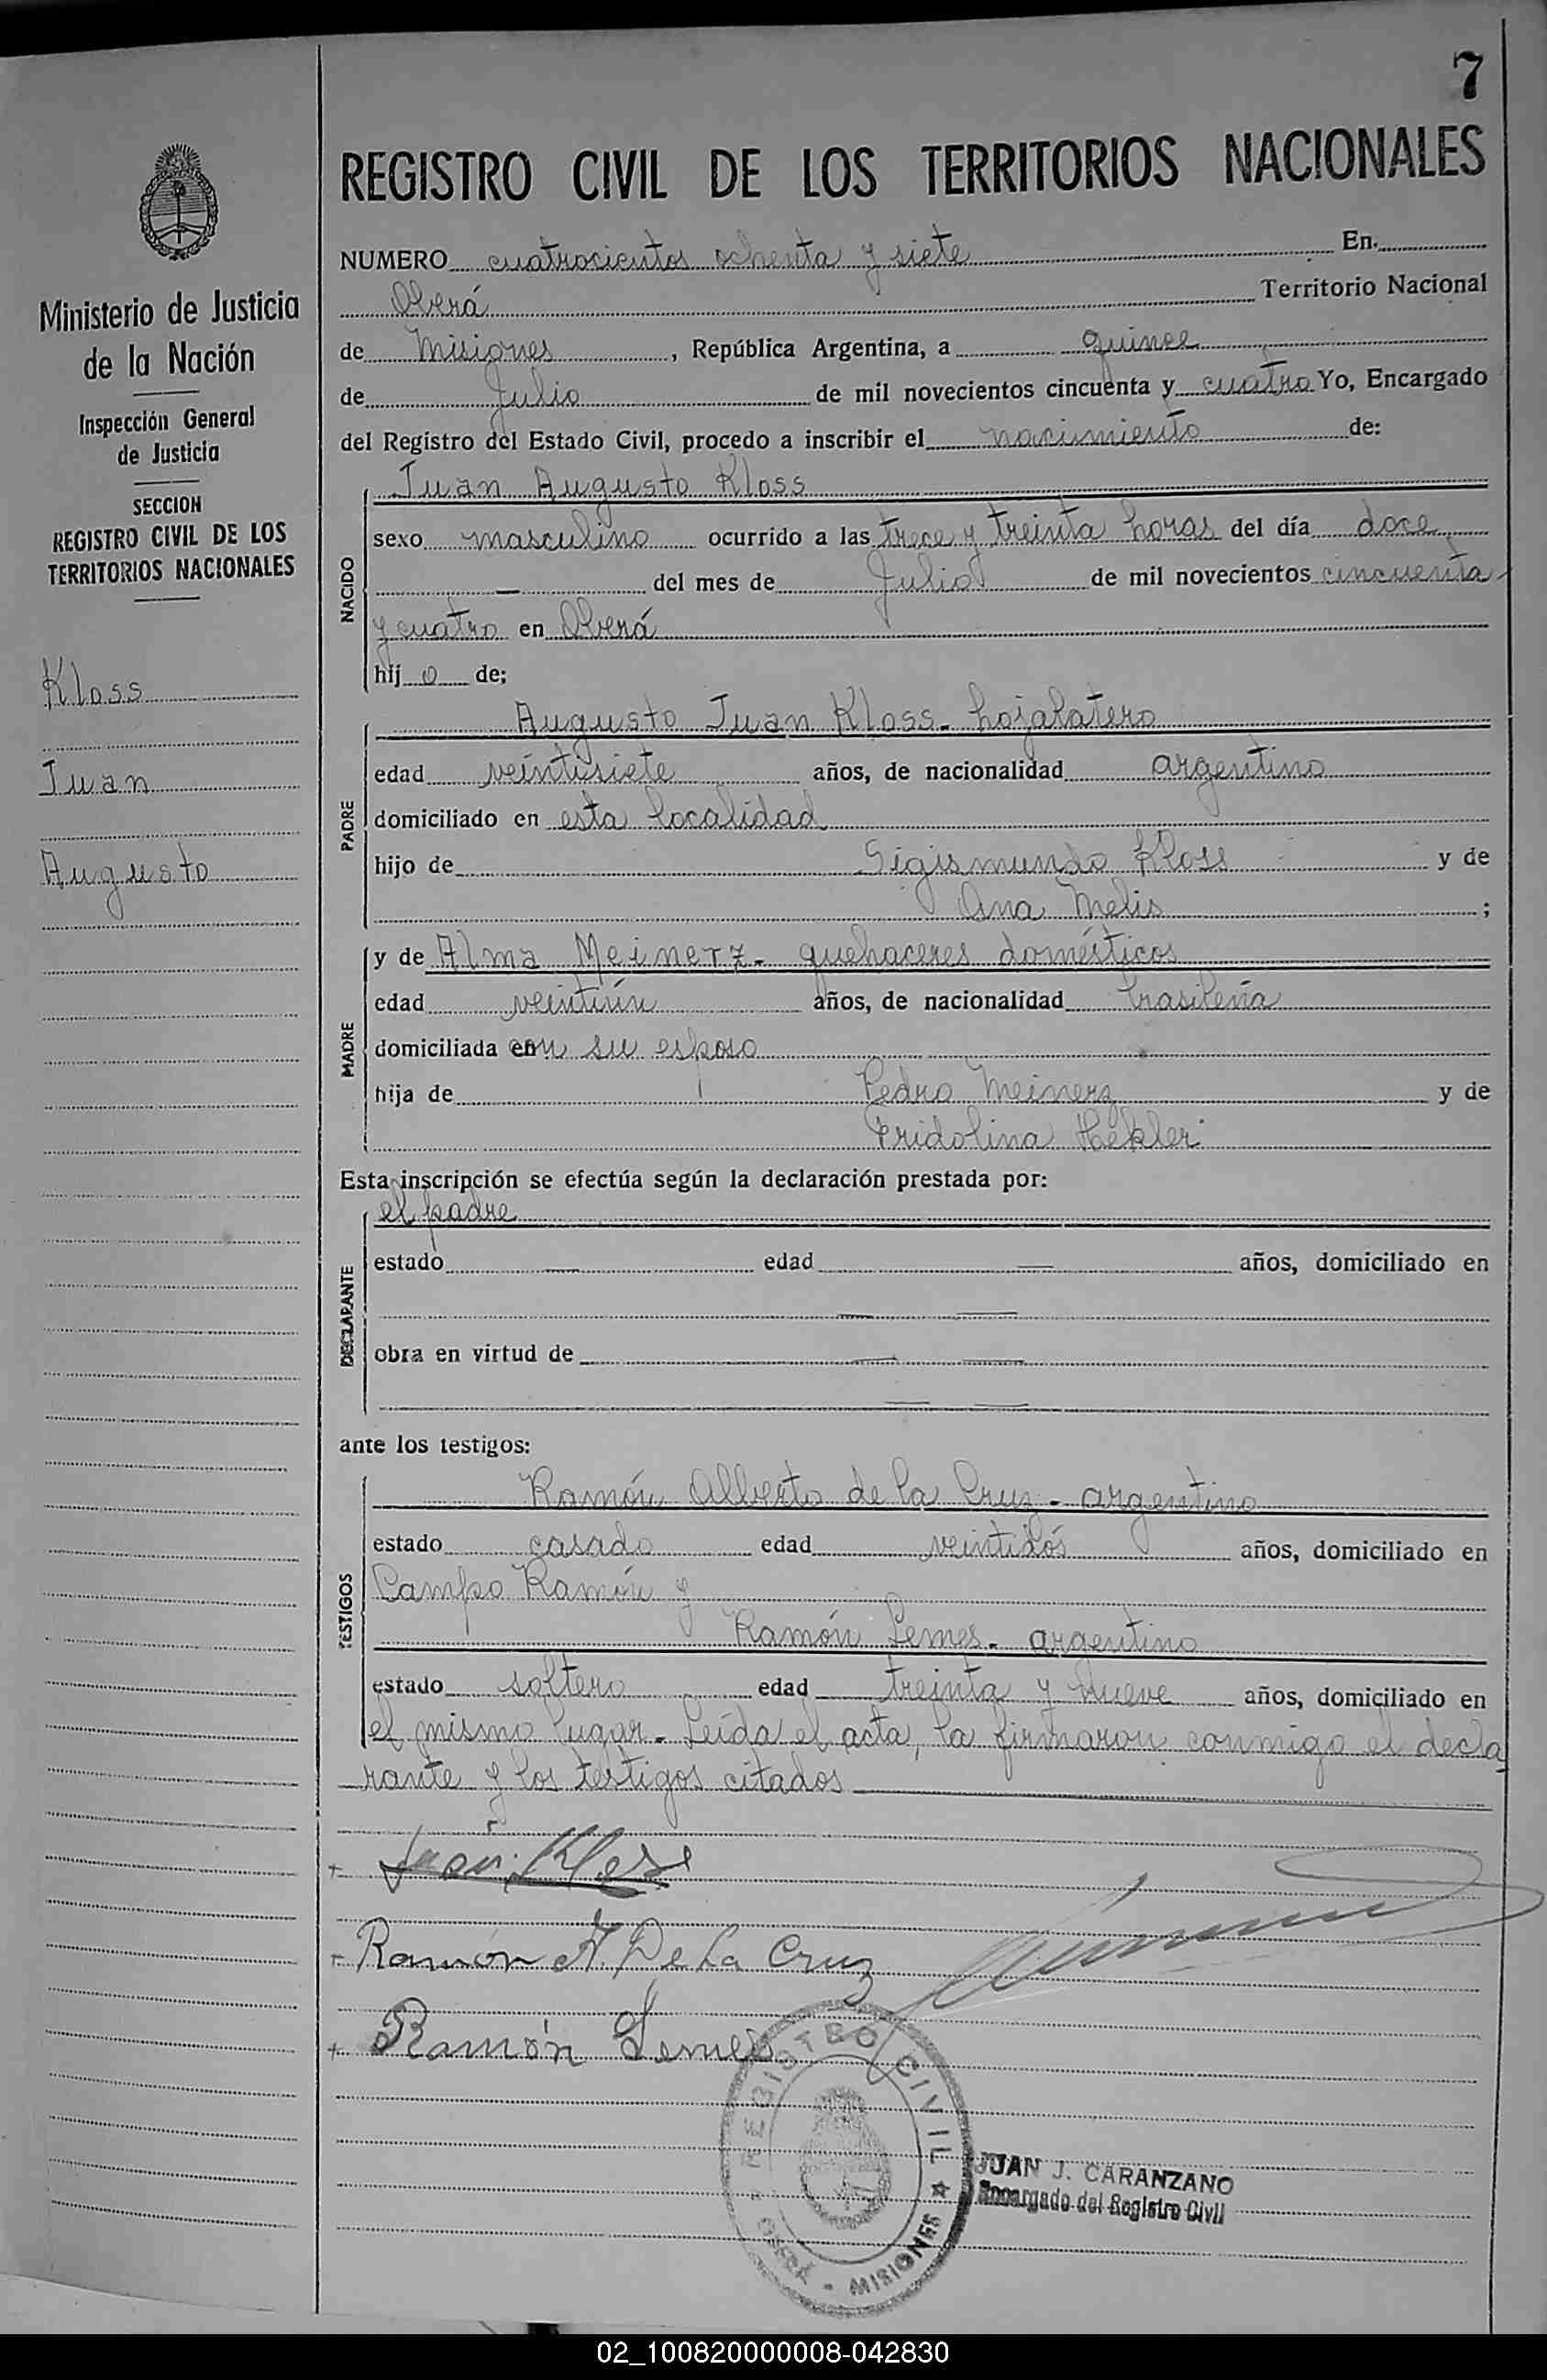 7
REGISTRO CIVIL DE LOS TERRITORIOS NACIONALES
Ministerio de Justicia
de la Nación
Inspección General
de Justicia
SECCION
REGISTRO CIVIL DE LOS
TERRITORIOS NACIONALES
Kloss
Juan
Augusto
NUMERO cuatrocientos ochenta y siete En
Oberá Territorio Nacional
de Misiones, República Argentina, a quince
de Julio de mil novecientos cincuenta y cuatro Yo, Encargado
del Registro del Estado Civil, procedo a inscribir el nacimiento de:
NACIDO
Juan Augusto Kloss
sexo masculino ocurrido a las trece y treinta horas del día doce
— del mes de Julio de mil novecientos cincuenta
y cuatro en Oberá
hij o de;
PADRE
Augusto Juan Kloss - hojalatero
edad veintisiete años, de nacionalidad argentino
domiciliado en esta localidad
hijo de Sigismundo Kloss y de
Ana Melis ;
MADRE
y de Alma Meinerz - quehaceres domésticos
edad veintiún años, de nacionalidad brasileña
domiciliada con su esposo
hija de Pedro Meinerz y de
Fridolina Hekler
Esta inscripción se efectúa según la declaración prestada por:
DECLARANTE
el padre
estado — edad — años, domiciliado en
— —
obra en virtud de — —
— —
ante los testigos:
TESTIGOS
Ramón Alberto de la Cruz - argentino
estado casado edad veintidós años, domiciliado en
Campo Ramón y
Ramón Lemes - argentino
estado soltero edad treinta y nueve años, domiciliado en
el mismo lugar - Leída el acta, la firmaron conmigo el decla
rante y los testigos citados
+ Juan Kloss
- Ramón A. De La Cruz
+ Ramón Lemes
REGISTRO CIVIL ★ MISIONES - OBERÁ
JUAN J. CARANZANO
Encargado del Registro Civil
02_100820000008-042830